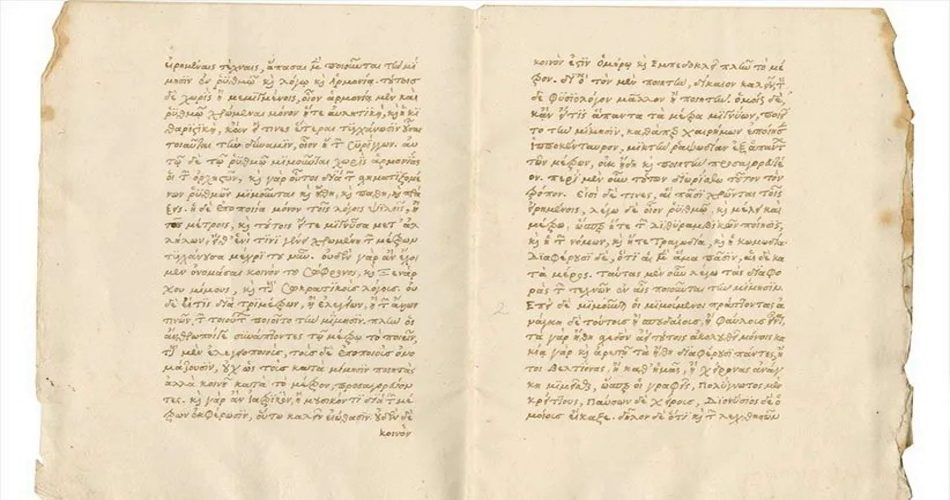 εἰρημέναις τέχναις, ἅπασαι μὲν ποιοῦνται τὴν μί
μησιν ἐν ῥυθμῷ καὶ λόγῳ καὶ ἁρμονίᾳ. τούτοις
δὲ χωρὶς ἢ μεμιγμένοις, οἷον ἁρμονίᾳ μὲν καὶ
ῥυθμῷ χρώμεναι μόνον ἥτε αὐλητικὴ, καὶ ἡ κι
θαριστικὴ, κἂν εἴ τινες ἕτεραι τυγχάνωσιν οὖσαι
τοιαῦται τὴν δύναμιν, οἷον ἡ τῶν συρίγγων. αὐ
τῷ δὲ τῷ ῥυθμῷ μιμοῦνται χωρὶς ἁρμονίας
οἱ τῶν ὀρχηστῶν, καὶ γὰρ οὗτοι διὰ τῶν σχηματιζομέ
νων ῥυθμῶν μιμοῦνται καὶ ἤθη, καὶ πάθη, καὶ πρά
ξεις. ἡ δὲ ἐποποιία μόνον τοῖς λόγοις ψιλοῖς, ἢ
τοῖς μέτροις, καὶ τούτοις εἴτε μιγνῦσα μετ' ἀλ
λήλων, εἴθ' ἑνί τινι γένει χρωμένη τῶν μέτρων
τυγχάνουσα μέχρι τοῦ νῦν. οὐδὲν γὰρ ἂν ἔχοι
μεν ὀνομάσαι κοινὸν τοὺς Σώφρονος, καὶ Ξενάρ
χου μίμους, καὶ τοὺς Σωκρατικοὺς λόγους. οὐ
δὲ εἴ τις διὰ τριμέτρων, ἢ ἐλεγείων, ἢ τῶν ἄλλων
τινῶν τῶν τοιούτων ποιοῖτο τὴν μίμησιν. πλὴν οἱ
ἄνθρωποί γε συνάπτοντες τῷ μέτρῳ τὸ ποιεῖν,
τοὺς μὲν ἐλεγειοποιοὺς, τοὺς δὲ ἐποποιοὺς ὀνο
μάζουσιν, οὐχ ὡς τοὺς κατὰ μίμησιν ποιητὰς
ἀλλὰ κοινῇ κατὰ τὸ μέτρον προσαγορεύον
τες. καὶ γὰρ ἂν ἰατρικὸν ἢ μουσικόν τι διὰ τῶν μέ
τρων ἐκφέρωσιν, οὕτω καλεῖν εἰώθασιν. οὐδὲν δὲ
κοινὸν
κοινὸν ἐστὶν Ὁμήρῳ καὶ Ἐμπεδοκλεῖ πλὴν τὸ μέ
τρον. διὸ τὸν μὲν ποιητὴν, δίκαιον καλεῖν, τὸν
δὲ φυσιολόγον μᾶλλον ἢ ποιητήν. ὁμοίως δὲ,
κἂν εἴ τις ἅπαντα τὰ μέτρα μιγνύων, ποιοῖ
το τὴν μίμησιν, καθάπερ Χαιρήμων ἐποίησε
ἱπποκένταυρον, μικτὴν ῥαψωδίαν ἐξ ἁπάντων
τῶν μέτρων, οὐκ ἤδη καὶ ποιητὴν προσαγορευτέ
ον. περὶ μὲν οὖν τούτων διωρίσθω τοῦτον τὸν
τρόπον. εἰσὶ δέ τινες, αἳ πᾶσι χρῶνται τοῖς
εἰρημένοις, λέγω δὲ οἷον ῥυθμῷ, καὶ μέλει καὶ
μέτρῳ, ὥσπερ ἥτε τῶν διθυραμβικῶν ποίησις,
καὶ ἡ τῶν νόμων, καὶ ἥτε τραγωδία, καὶ ἡ κωμωδία.
διαφέρουσι δὲ, ὅτι αἱ μὲν ἅμα πᾶσιν, αἱ δὲ κα
τὰ μέρος. ταύτας μὲν οὖν λέγω τὰς διαφο
ρὰς τῶν τεχνῶν ἐν αἷς ποιοῦνται τὴν μίμησιν.
Ἐπεὶ δὲ μιμοῦνται οἱ μιμούμενοι πράττοντας ἀ
νάγκη δὲ τούτους ἢ σπουδαίους, ἢ φαύλους εἶναι,
τὰ γὰρ ἤθη σχεδὸν ἀεὶ τούτοις ἀκολουθεῖ μόνοις κα
κίᾳ γὰρ καὶ ἀρετῇ τὰ ἤθη διαφέρουσι πάντες, ἤ
τοι βελτίονας, ἢ καθ' ἡμᾶς, ἢ χείρονας ἀνάγ
κη μιμεῖσθαι, ὥσπερ οἱ γραφεῖς, Πολύγνωτος μὲν
κρείττους, Παύσων δὲ χείρους, Διονύσιος δὲ ὁ
μοίους εἴκαζε. δῆλον δὲ ὅτι καὶ τῶν λεχθεισῶν